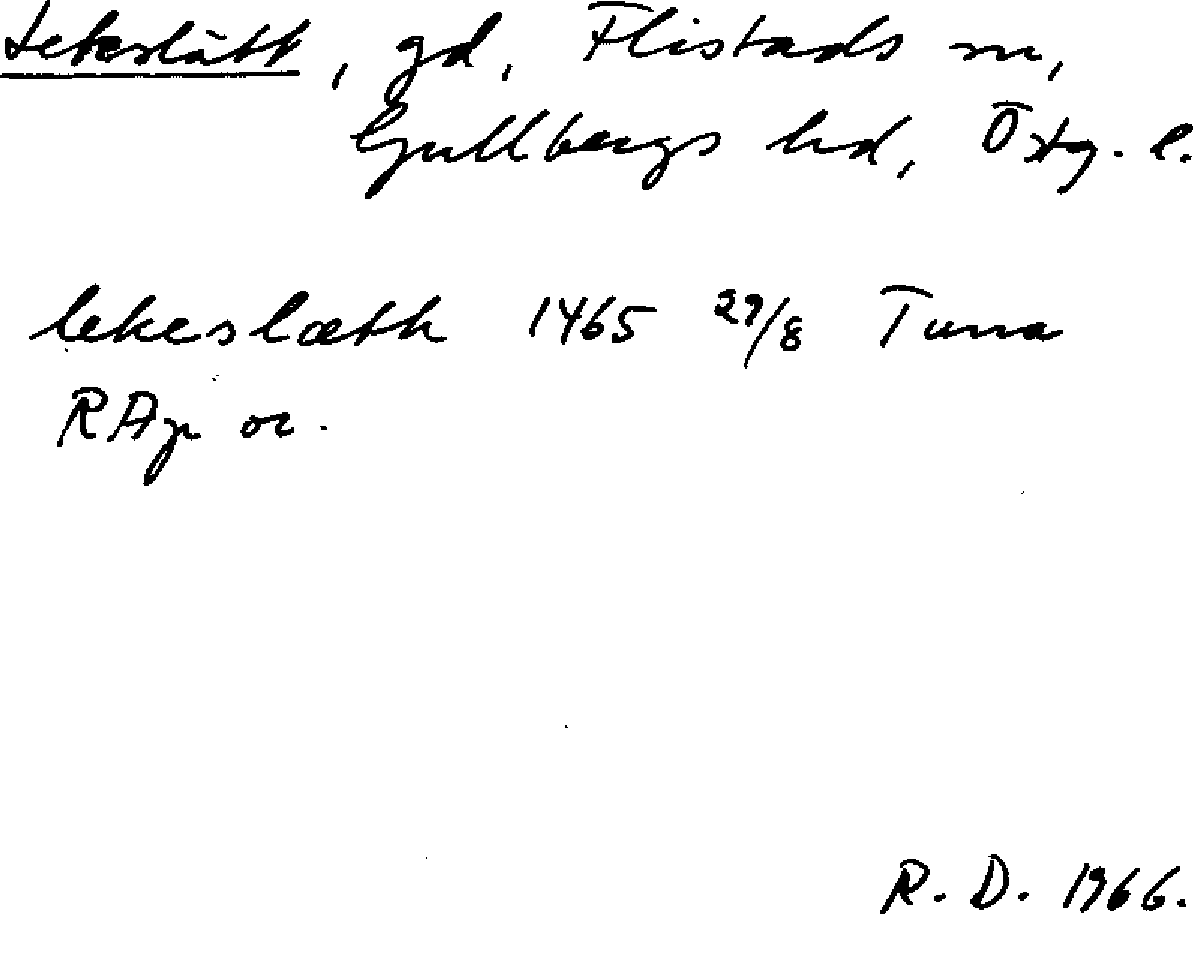 Lekeslätt, gd, Flistads sn,
Gullbergs hd, Östg. l.
lekeslæth 1465 29/8 Tuna
RAp or.
R. D. 1966.